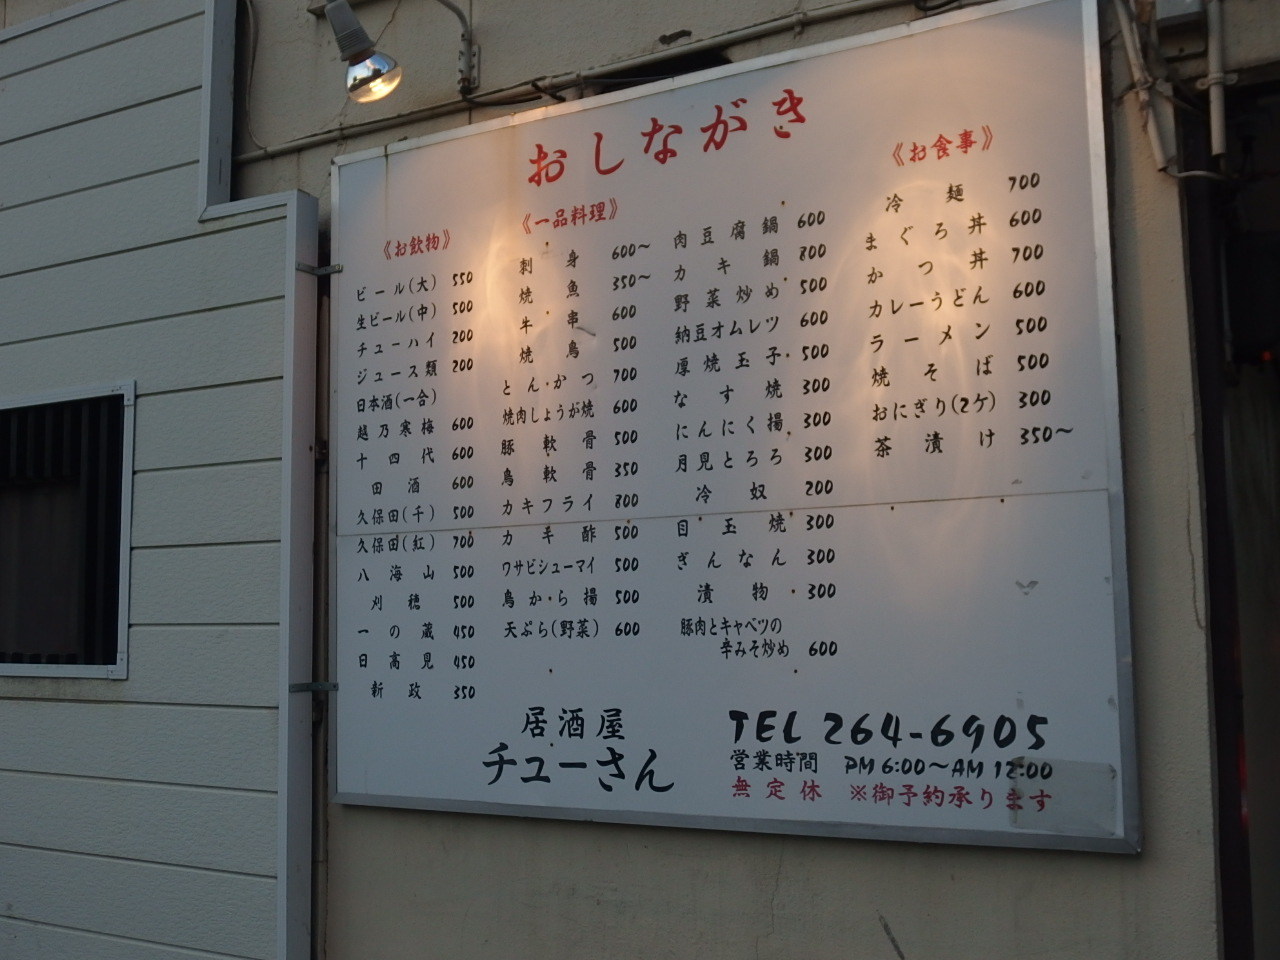 おしながき
《お飲物》
ビール(大) 550
生ビール(中) 500
チューハイ 200
ジュース類 200
日本酒(一合)
越乃寒梅 600
十四代 600
田酒 600
久保田(千) 500
久保田(紅) 700
八海山 500
刈穂 500
一の蔵 450
日高見 450
新政 350
《一品料理》
刺身 600〜
焼魚 350〜
牛串 600
焼鳥 500
とんかつ 700
焼肉しょうが焼 600
豚軟骨 500
鳥軟骨 350
カキフライ 800
カキ酢 500
ワサビシューマイ 500
鳥から揚 500
天ぷら(野菜) 600
肉豆腐鍋 600
カキ鍋 800
野菜炒め 500
納豆オムレツ 600
厚焼玉子 500
なす焼 300
にんにく揚 300
月見とろろ 300
冷奴 200
目玉焼 300
ぎんなん 300
漬物 300
豚肉とキャベツの
辛みそ炒め 600
《お食事》
冷麺 700
まぐろ丼 600
かつ丼 700
カレーうどん 600
ラーメン 500
焼そば 500
おにぎり(2ケ) 300
茶漬け 350〜
居酒屋
チューさん
TEL 264-6905
営業時間 PM 6:00〜AM 12:00
無定休 ※御予約承ります